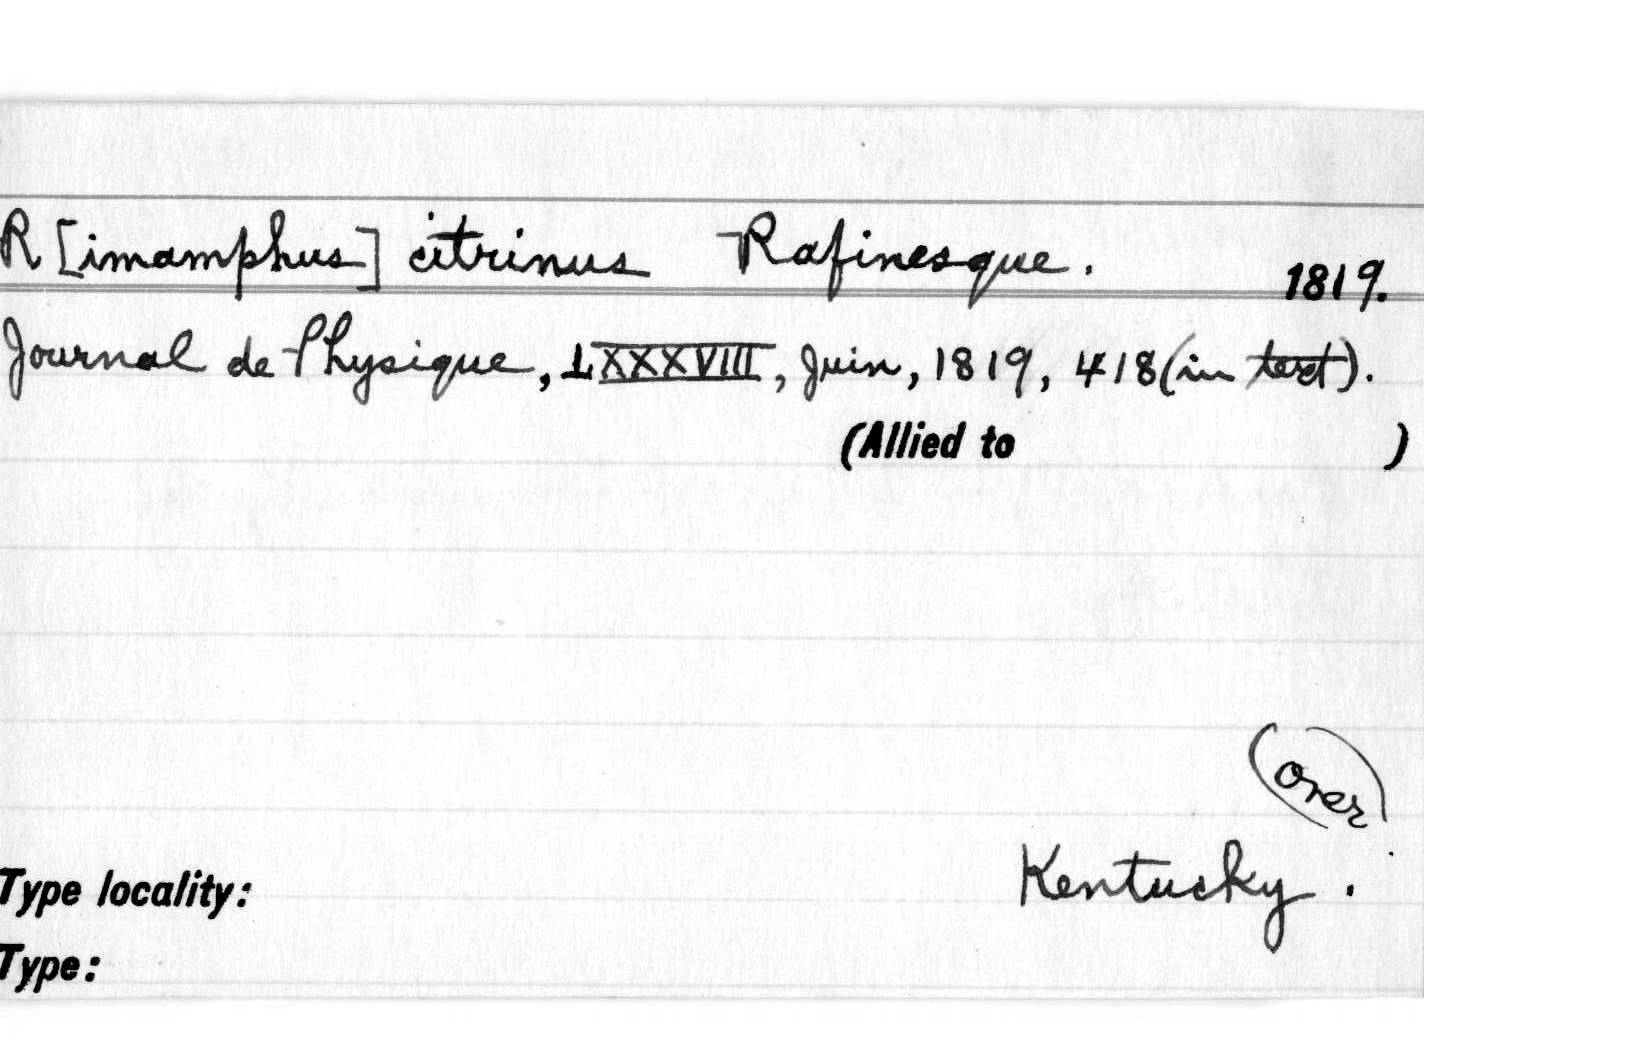 R [imamphus] citrinus Rafinesque. 1819.
Journal de Physique, LXXXVIII, Juin, 1819, 418 (in text).
(Allied to )
(over)
Kentucky.
Type locality:
Type: